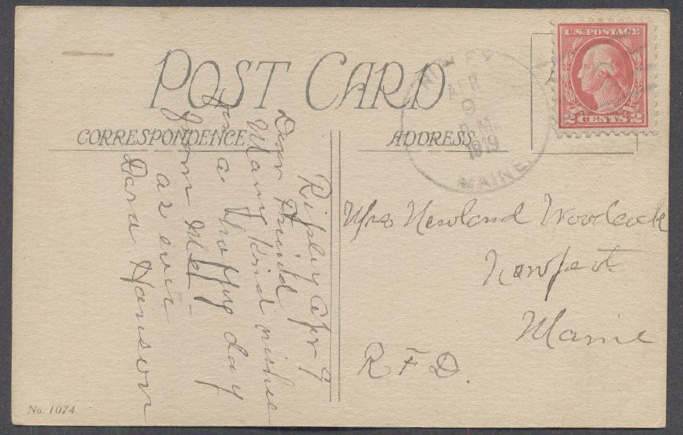 POST CARD
CORRESPONDENCE
ADDRESS
U.S. POSTAGE
2 CENTS 2
RIPLEY
APR
9
P.M.
1919
MAINE
Ripley Apr 9
Dear Friend
Many kind wishes
for a happy day
from Me
as ever
Dora Hanson
Mrs Newland Woodcock
Newport
Maine
R F D.
No. 1074